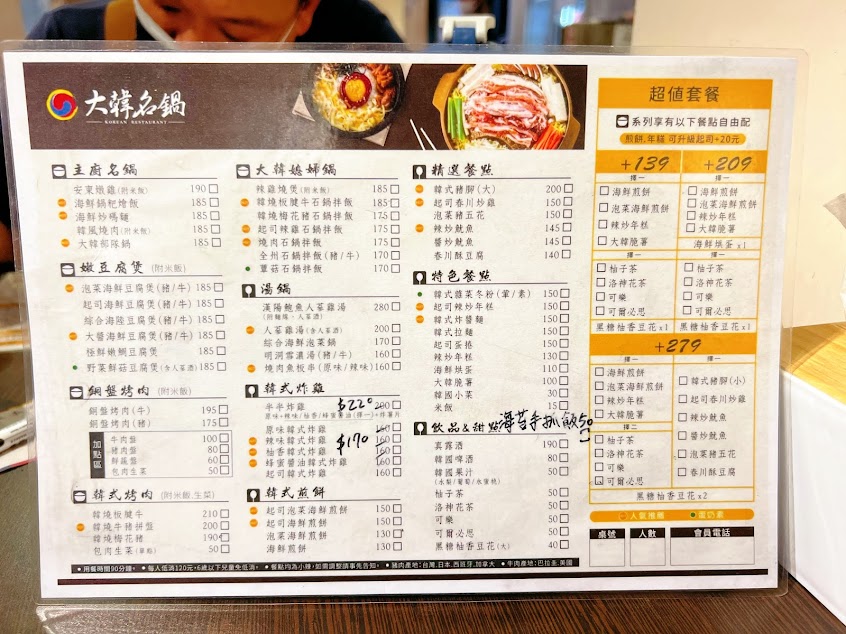 大韓名鍋
KOREAN RESTAURANT
主廚名鍋
安東燉雞(附米飯) 190
海鮮鍋粑燴飯 185
海鮮炒瑪麵 185
韓風燒肉(附米飯) 185
大韓部隊鍋 185
嫩豆腐煲 (附米飯)
泡菜海鮮豆腐煲(豬/牛) 185
起司海鮮豆腐煲(豬/牛) 185
綜合海陸豆腐煲(豬/牛) 185
大醬海鮮豆腐煲(豬/牛) 185
極鮮嫩鯛豆腐煲 185
野菜鮮菇豆腐煲(含人蔘酒) 185
銅盤烤肉 (附米飯)
銅盤烤肉(牛) 195
銅盤烤肉(豬) 175
加點區
牛肉盤 100
豬肉盤 80
鮮蔬盤 60
包肉生菜 50
韓式烤肉 (附米飯.生菜)
韓燒板腱牛 210
韓燒牛豬拼盤 200
韓燒梅花豬 190
包肉生菜(單點) 50
大韓媳婦鍋
辣雞燒煲(附米飯) 185
韓燒板腱牛石鍋拌飯 185
韓燒梅花豬石鍋拌飯 175
起司辣雞石鍋拌飯 185
燒肉石鍋拌飯 175
全州石鍋拌飯(豬/牛) 170
蕈菇石鍋拌飯 170
湯鍋
漢陽鮑魚人蔘雞湯 280
(附麵線、人蔘酒)
人蔘雞湯(含人蔘酒) 200
綜合海鮮泡菜鍋 170
明洞雪濃湯(豬/牛) 160
燒肉魚板串(原味/辣味) 160
韓式炸雞
半半炸雞 $220 200
原味韓式炸雞 160
辣味韓式炸雞 160
柚香韓式炸雞 $170 160
蜂蜜醬油韓式炸雞 160
起司韓式炸雞
韓式煎餅
起司泡菜海鮮煎餅 150
起司海鮮煎餅 150
泡菜海鮮煎餅 130
海鮮煎餅 130
精選餐點
韓式豬腳(大) 200
起司春川炒雞 150
泡菜豬五花 150
辣炒魷魚 145
醬炒魷魚 145
春川酥豆腐 140
特色餐點
韓式雜菜冬粉(葷/素) 150
起司辣炒年糕 150
韓式炸醬麵 150
韓式拉麵 150
起司蛋捲 150
辣炒年糕 130
海鮮烘蛋 110
大韓脆薯 100
韓國小菜 30
米飯 15
海苔手抓飯 50
飲品&甜點
真露酒 190
韓國啤酒 80
韓國果汁 50
(水梨/葡萄/水蜜桃)
柚子茶 50
洛神花茶 50
可樂 50
可爾必思 50
黑糖柚香豆花(大) 40
超值套餐
系列享有以下餐點自由配
煎餅.年糕 可升級起司+20元
+139
擇一
海鮮煎餅
泡菜海鮮煎餅
辣炒年糕
大韓脆薯
擇一
柚子茶
洛神花茶
可樂
可爾必思
黑糖柚香豆花x1
+209
擇一
海鮮煎餅
泡菜海鮮煎餅
辣炒年糕
大韓脆薯
海鮮烘蛋x1
擇一
柚子茶
洛神花茶
可樂
可爾必思
黑糖柚香豆花x1
+279
擇一
海鮮煎餅
泡菜海鮮煎餅
辣炒年糕
大韓脆薯
擇一
柚子茶
洛神花茶
可樂
可爾必思
擇一
韓式豬腳(小)
起司春川炒雞
辣炒魷魚
醬炒魷魚
泡菜豬五花
春川酥豆腐
黑糖柚香豆花x2
人氣推薦 蛋奶素
桌號 人數 會員電話
●用餐時間90分鐘。 ●每人低消120元，6歲以下兒童免低消。 ●餐點均為小辣，如需調整請事先告知。 ●豬肉產地：台灣.日本.西班牙.加拿大 ●牛肉產地：巴拉圭.美國